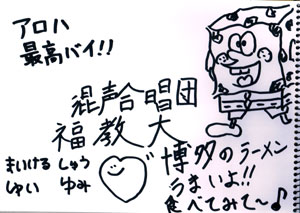 アロハ
最高バイ!!
混声合唱団
福教大
まいける しゅう
しゅい ゆみ
博多のラーメン
うまいよ!!
食べてみて〜♪